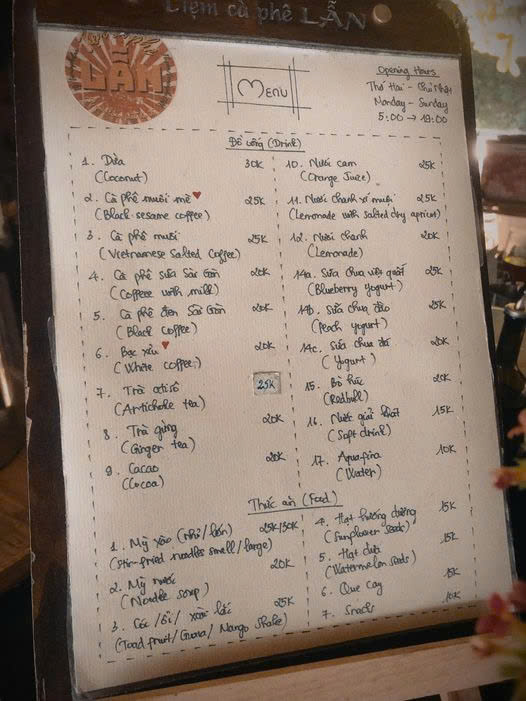 Tiệm cà phê LẪN
LẪN
Menu
Opening Hours
Thứ Hai - Chủ Nhật
Monday - Sunday
5:00 → 19:00
Đồ uống (Drink)
1. Dừa 30K
(Coconut)
2. Cà phê muối mè ♥ 25K
(Black sesame coffee)
3. Cà phê muối 25K
(Vietnamese Salted Coffee)
4. Cà phê sữa Sài Gòn 20K
(Coffee with milk)
5. Cà phê đen Sài Gòn 20K
(Black coffee)
6. Bạc xỉu ♥ 20K
(White coffee)
7. Trà atisô 25K
(Artichoke tea)
8. Trà gừng 20K
(Ginger tea)
9. Cacao 20K
(Cocoa)
10. Nước cam 25K
(Orange Juice)
11. Nước chanh xí muội 25K
(Lemonade with salted dry apricot)
12. Nước chanh 20K
(Lemonade)
14a. Sữa chua việt quất 25K
(Blueberry yogurt)
14b. Sữa chua đào 25K
(Peach yogurt)
14c. Sữa chua đá 20K
(Yogurt)
15. Bò húc 20K
(Redbull)
16. Nước giải khát 15K
(Soft drink)
17. Aquafina 10K
(Water)
Thức ăn (Food)
1. Mỳ xào (nhỏ/lớn) 25K/30K
(Stir-fried noodles small/large)
2. Mỳ nước 20K
(Noodle soup)
3. Cóc/ổi/xoài lắc 25K
(Toad fruit/Guava/Mango shake)
4. Hạt hướng dương 15K
(Sunflower seeds)
5. Hạt dưa 15K
(Watermelon seeds)
6. Que cay 15K
7. Snack 10K